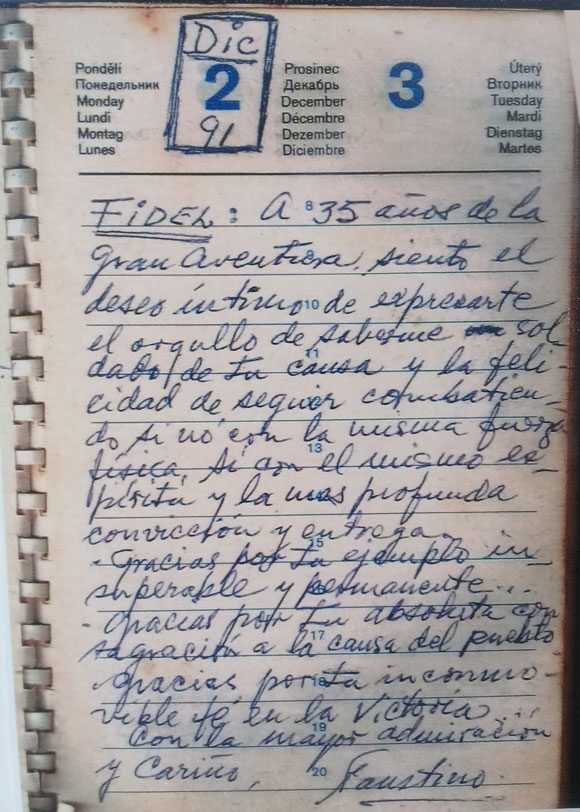 Dic
Pondělí 2 Prosinec 3 Úterý
Понедельник Декабрь Вторник
Monday December Tuesday
Lundi Décembre Mardi
Montag Dezember Dienstag
Lunes Diciembre Martes
91
FIDEL: A 8 35 años de la
gran aventura, siento el
deseo íntimo 10 de expresarte
el orgullo de saberme sol
dado de tu causa y la feli-
11
cidad de seguir combatien-
do si no con la misma fuerza
13
física, sí con el mismo es-
píritu y la mas profunda
convicción y entrega.
15
- Gracias por tu ejemplo in-
superable y permanente...
- Gracias por tu absoluta con
17
sagración a la causa del pueblo
- Gracias por tu inconmo-
18
vible fé en la Victoria...
19
Con la mayor admiración
y Cariño, 20 Faustino.